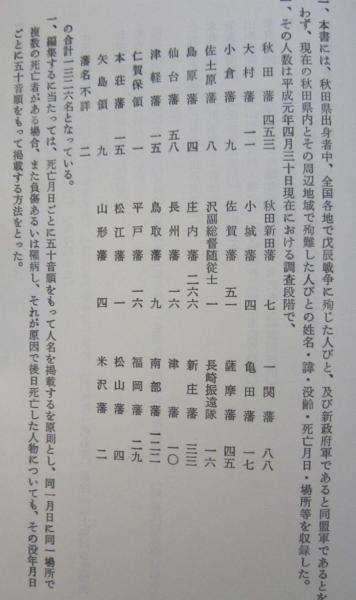 一、本書には、秋田県出身者中、全国各地で戊辰戦争に殉じた人びとと、及び新政府軍であると同盟軍であるとを
わず、現在の秋田県内とその周辺地域で殉難した人びとの姓名・諱・没齢・死亡月日・場所等を収録した。
一、その人数は平成元年四月三十日現在における調査段階で、
秋田藩 四五三 秋田新田藩 七 一関藩 八八
大村藩 一一 小城藩 四 亀田藩 一七
小倉藩 九 佐賀藩 五一 薩摩藩 四五
佐土原藩 八 沢副総督随従士 一 長崎振遠隊 一六
島原藩 四 庄内藩 二六六 新庄藩 三三
仙台藩 五八 長州藩 一六 津藩 一〇
津軽藩 一五 鳥取藩 九 南部藩 一二二
仁賀保領 一 平戸藩 一六 福岡藩 二九
本荘藩 一五 松江藩 一 松山藩 四
矢島領 九 山形藩 四 米沢藩 二
藩名不詳 二
の合計一三二六名となっている。
一、編集するに当たっては、死亡月日ごとに五十音順をもって人名を掲載するを原則とし、同一月日に同一場所で
複数の死亡者がある場合、また負傷あるいは罹病し、それが原因で後日死亡した人物についても、その没年月日
ごとに五十音順をもって掲載する方法をとった。